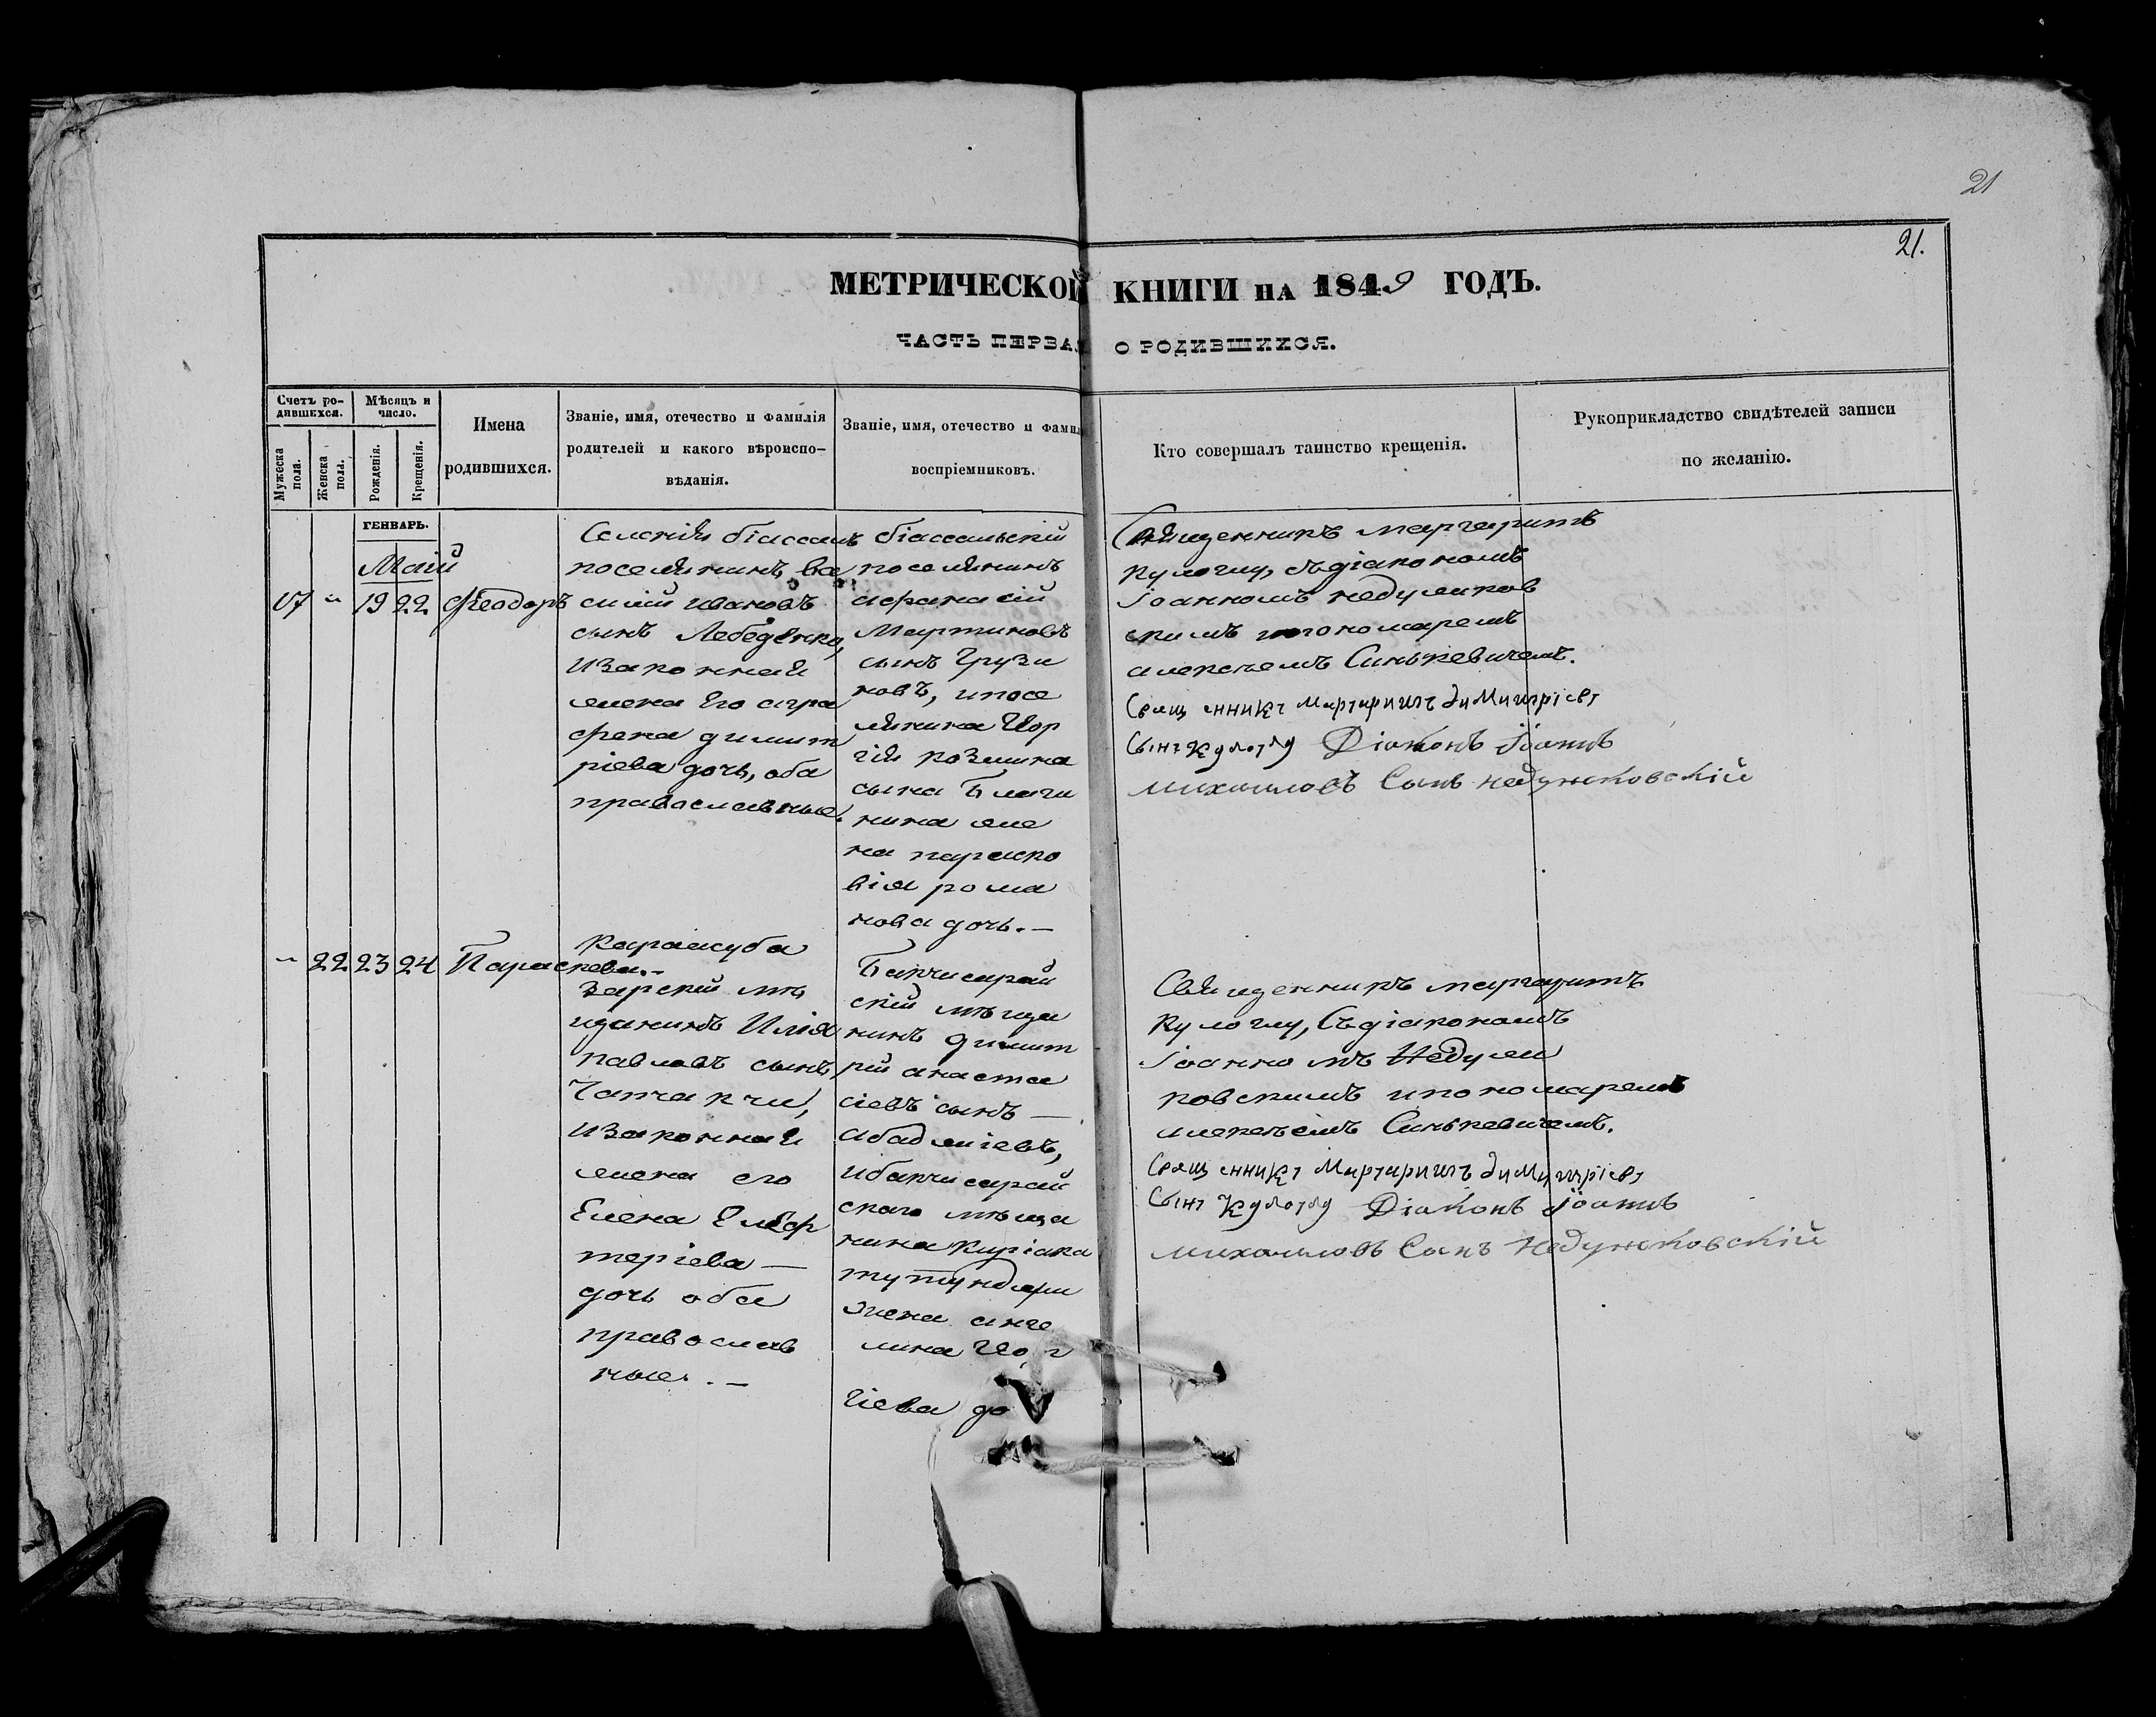 21
21.
МЕТРИЧЕСКОЙ КНИГИ НА 1849 ГОДЪ.
ЧАСТЬ ПЕРВАЯ О РОДИВШИХСЯ.
Счетъ ро-
дившихся.
Мужеска
пола.
Женска
пола.
Мѣсяцъ и
число.
Рожденія.
Крещенія.
Имена
родившихся.
Званіе, имя, отечество и фамилія
родителей и какого вѣроиспо-
вѣданія.
Званіе, имя, отечество и фамил
воспріемниковъ.
Кто совершалъ таинство крещенія.
Рукоприкладство свидѣтелей записи
по желанію.
ГЕНВАРЬ.
Маій
17 " 19 22 Ѳеодоръ
поселянинъ Ва
силій Ивановъ
сынъ Лебеденко,
изаконная
жена Его агра
фена димит
ріева дочь, оба
православные.
біассальскій
поселянинъ
афанасій
Мартиновъ
сынъ Грузи
новъ, ипосе
лянина Геор
гія козмина
сына
жена
на параско
вія рома
нова дочь.—
Священникъ маргаритъ
кулоглу, съдіакономъ
іоанномъ недулжков
скимъ ипономаремъ
алексѣемъ Синькевичемъ.
Священникъ Маргаритъ Димитріевъ
Сынъ Кулоглу Діаконъ Іоаннъ
михаиловъ Сынъ Недужковскій
" 22 23 24 Параскева.—
Карасуба
зарскій мѣ
щанинъ Илія
павловъ сынъ
Чапчакчи,
изаконная
жена его
Елена Елеф
теріева —
дочь оба
православ
ные. —
Бакчисарай
скій мѣща
нинъ димит
рій анаста
сіевъ сынъ —
абаджіевъ,
ибакчисарай
скаго мѣща
нина Киріака
тутунджи
жена анге
лина Геор
гіева до
Священникъ маргаритъ
кулоглу, Съдіакономъ
Іоанномъ Недуж
ковскимъ ипономаремъ
алексѣемъ Синькевичемъ.
Священникъ Маргаритъ Димитріевъ
Сынъ Кулоглу Діаконъ Іоаннъ
михаиловъ Сынъ Недужковскій